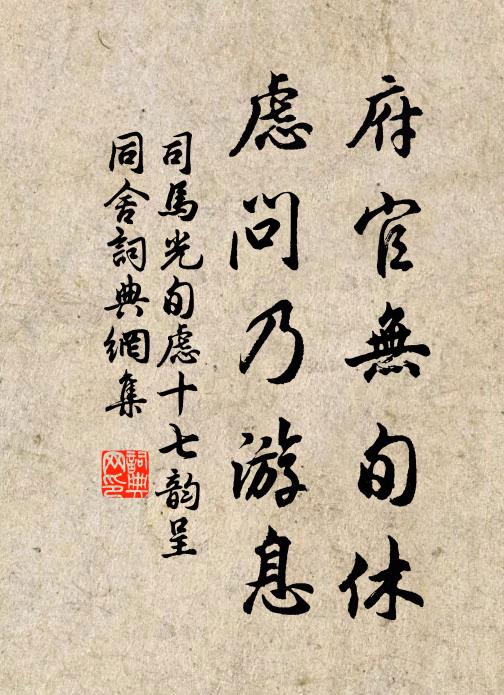 府官無旬休
慮問乃游息
司馬光旬慮十七韵呈
同舍詞典網集
詞典網印